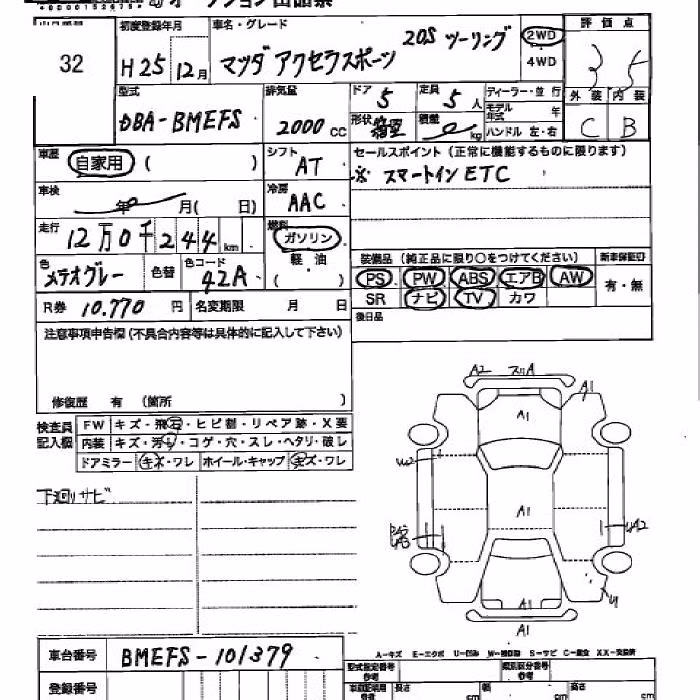 オークション出品票
32
初度登録年月 車名・グレード 評価点
H25 12月 マツダ アクセラスポーツ 20S ツーリング 2WD 3.5
4WD
外装 内装
C B
型式 排気量 ドア 定員 ディーラー・並行
DBA-BMEFS 2000 CC 5 5人 モデル年式 年
形状 箱型 積載 0 kg ハンドル 左・右
車歴 シフト セールスポイント (正常に機能するものに限ります)
自家用 ( ) AT ※ スマートイン ETC
車検 冷房
年 月( 日) AAC
走行 燃料
12万0千244km ガソリン
軽・油
( )
色 色替 色コード 装備品 (純正品に限り○をつけてください) 新車保証印
メテオグレー 42A PS PW ABS エアB AW 有・無
SR ナビ TV カワ
R券 10,770 円 名変期限 月 日 後日品
注意事項申告欄(不具合内容等は具体的に記入して下さい)
修復歴 有 (箇所 )
検査員記入欄 FW キズ・飛石・ヒビ割・リペア跡・X要
内装 キズ・汚れ・コゲ・穴・スレ・ヘタリ・破レ
ドアミラー キズ・ワレ ホイール・キャップ キズ・ワレ
下廻りサビ
A2 スリA
A1
A1
A1
A1
A1
車台番号 BMEFS-101379
A-キズ E-エクボ U-凹み W-補修跡 S-サビ C-腐食 XX-交換済
登録番号
型式指定番号 参考 類別区分番号 参考
長さ cm 幅 cm 高さ cm